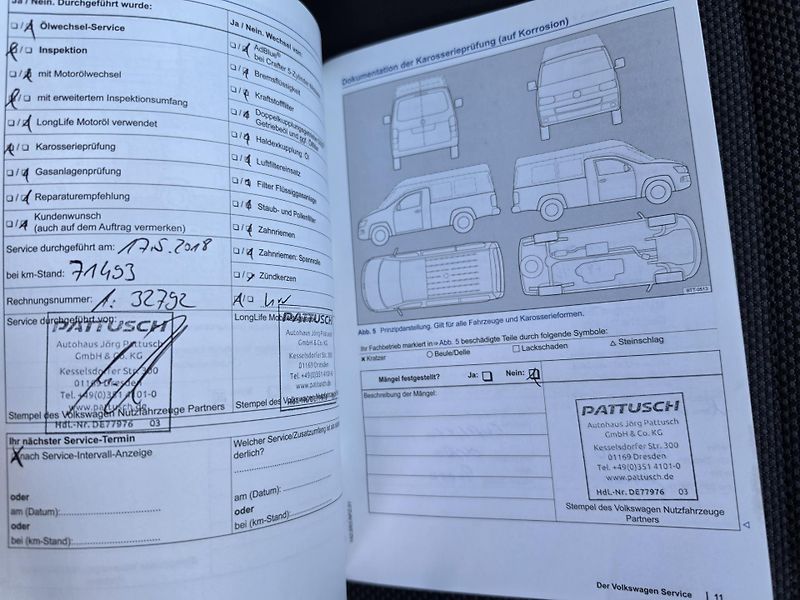 Ja / Nein. Durchgeführt wurde:
Ölwechsel-Service
Inspektion
mit Motorölwechsel
mit erweitertem Inspektionsumfang
LongLife Motoröl verwendet
Karosserieprüfung
Gasanlagenprüfung
Reparaturempfehlung
Kundenwunsch
(auch auf dem Auftrag vermerken)
Service durchgeführt am: 17.5.2018
bei km-Stand: 71493
Rechnungsnummer: 1: 32792
Service durchgeführt von:
PATTUSCH
Autohaus Jörg Pattusch
GmbH & Co. KG
Kesselsdorfer Str. 300
01169 Dresden
Tel. +49(0)351 4101-0
www.pattusch.de
Hdl.-Nr. DE77976 03
Stempel des Volkswagen Nutzfahrzeuge Partners
Ihr nächster Service-Termin
nach Service-Intervall-Anzeige
oder
am (Datum):
oder
bei (km-Stand):
Ja / Nein. Wechsel von:
AdBlue®
bei Crafter 5-Zylinder
Bremsflüssigkeit
Kraftstofffilter
Getriebeöl und ggf.
Haldexkupplung:
Luftfiltereinsatz
Filter Flüssiggasanlage
Staub- und Pollenfilter
Zahnriemen
Zahnriemen: Spannrolle
Zündkerzen
LongLife
PATTUSCH
Autohaus Jörg Pattusch
GmbH & Co. KG
Kesselsdorfer Str. 300
01169 Dresden
Tel. +49(0)351 4101-0
www.pattusch.de
Hdl.-Nr. DE77976
Stempel des
Welcher Service/Zusatzumfang ist
derlich?
am (Datum):
oder
bei (km-Stand):
Dokumentation der Karosserieprüfung (auf Korrosion)
BTT-0513
Abb. 5 Prinzipdarstellung. Gilt für alle Fahrzeuge und Karosserieformen.
Ihr Fachbetrieb markiert in ⇒ Abb. 5 beschädigte Teile durch folgende Symbole:
x Kratzer ○ Beule/Delle □ Lackschaden △ Steinschlag
Mängel festgestellt? Ja: Nein:
Beschreibung der Mängel:
PATTUSCH
Autohaus Jörg Pattusch
GmbH & Co. KG
Kesselsdorfer Str. 300
01169 Dresden
Tel. +49(0)351 4101-0
www.pattusch.de
Hdl.-Nr. DE77976 03
Stempel des Volkswagen Nutzfahrzeuge
Partners
Der Volkswagen Service | 11